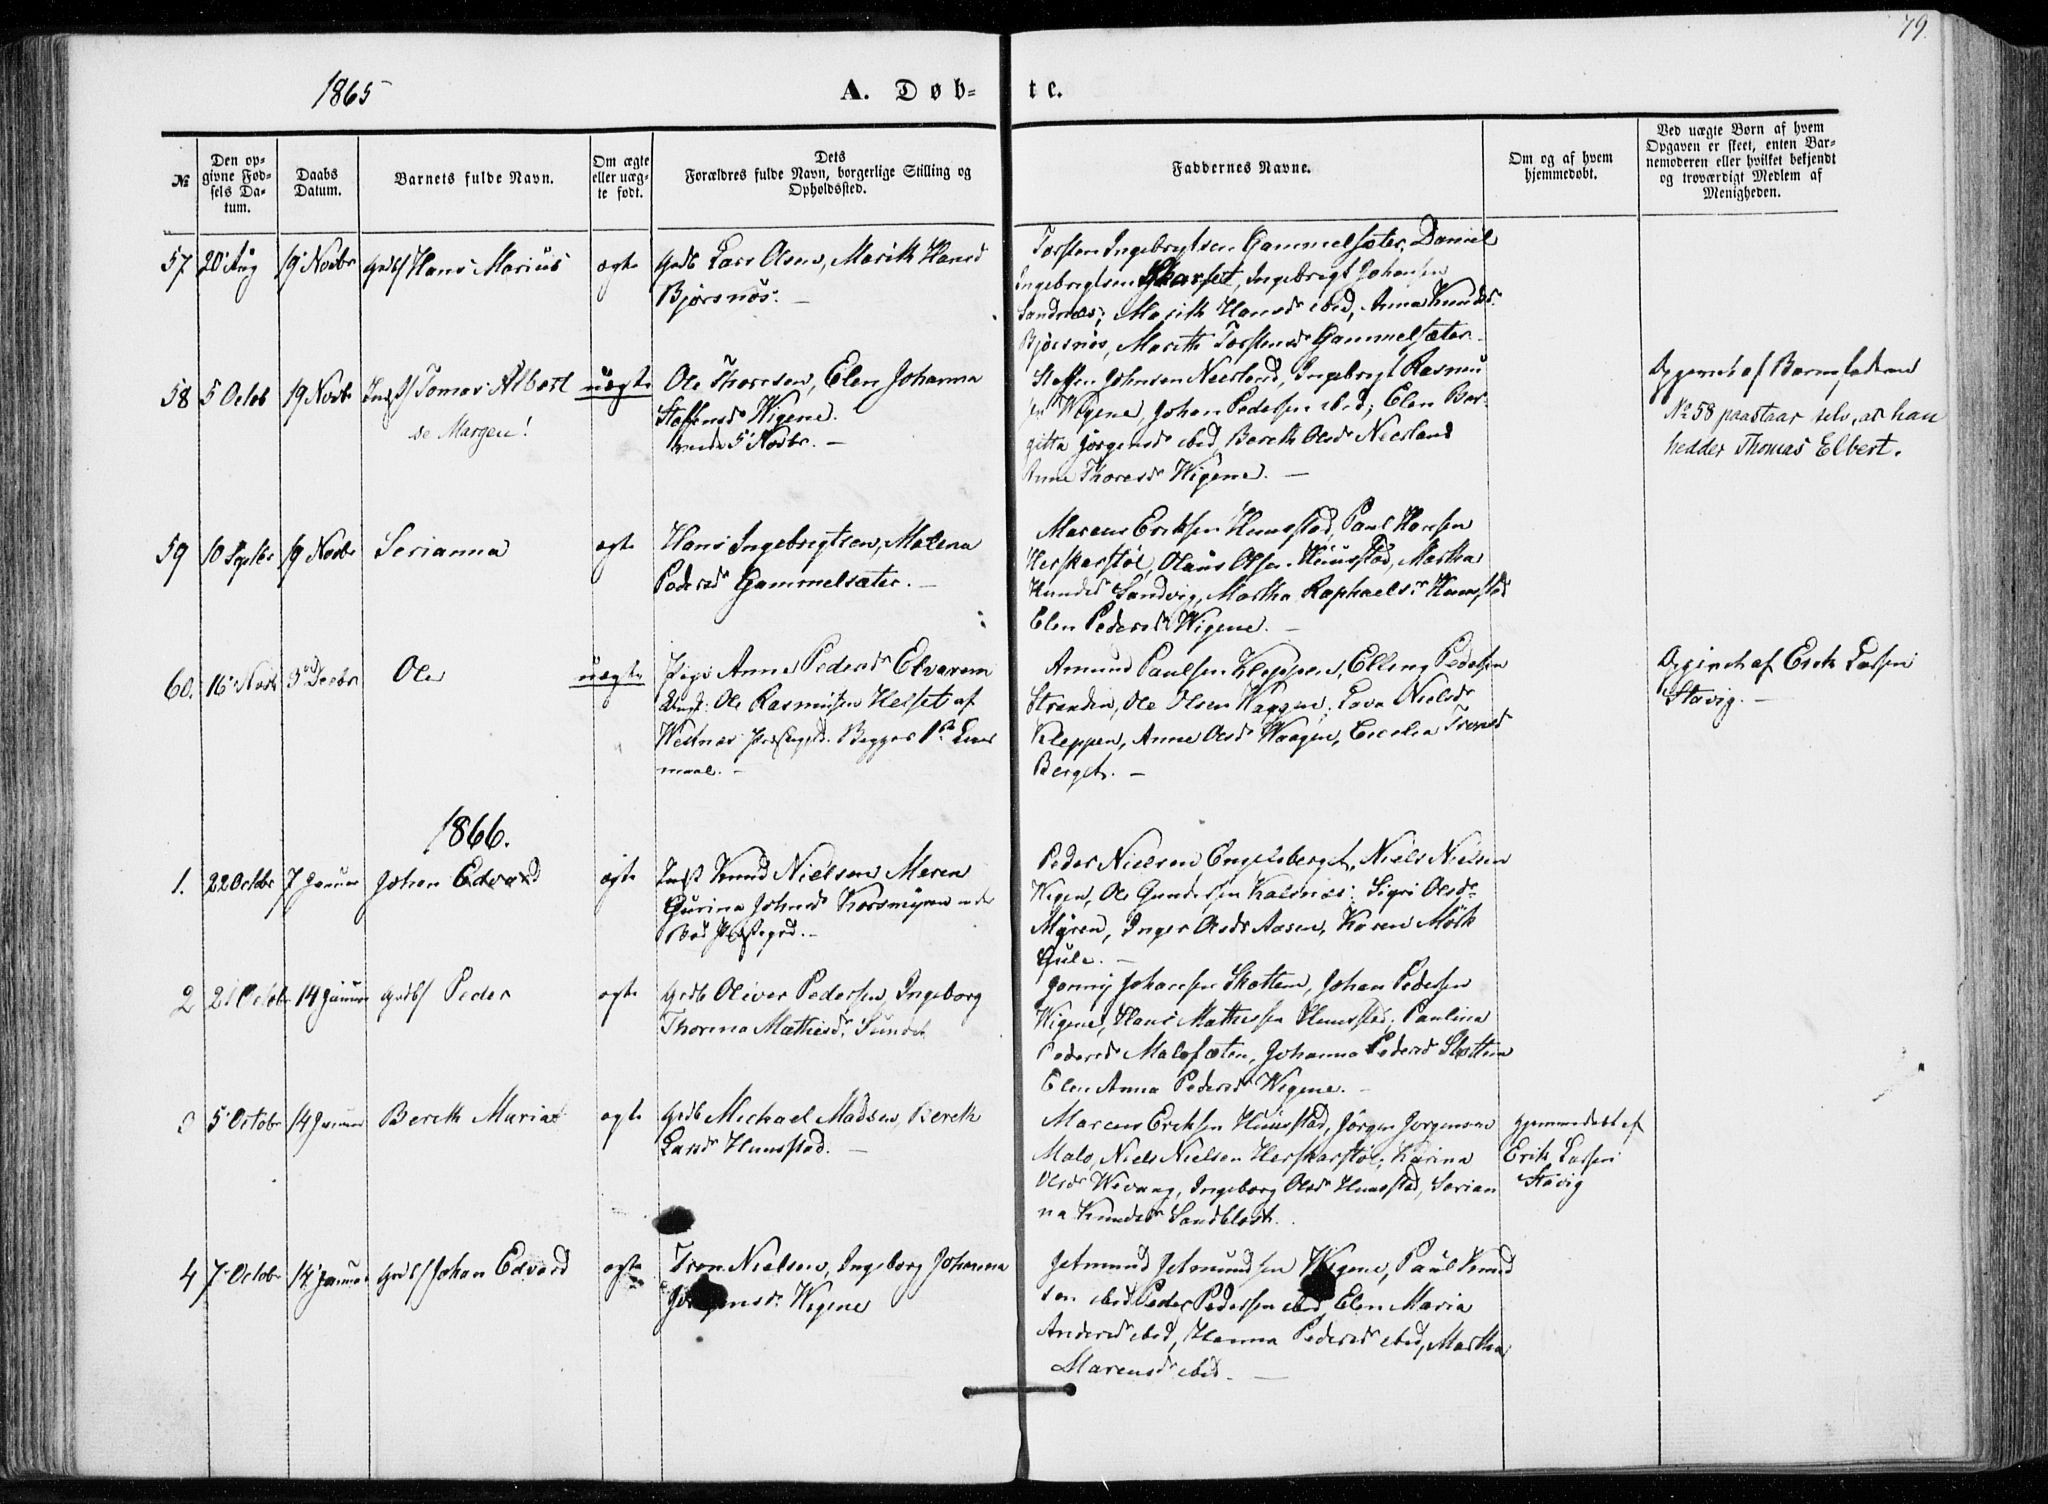 79.
1865
A. Døb-
te.
№
Den op-
givne Fød-
sels Da-
tum.
Daabs
Datum.
Barnets fulde Navn.
Om ægte
eller uæg-
te født.
Dets
Forældres fulde Navn, borgerlige Stilling og
Opholdssted.
Faddernes Navne.
Om og af hvem
hjemmedøbt.
Ved uægte Børn af hvem
Opgaven er skeet, enten Bar-
nemoderen eller hvilket bekjendt
og troværdigt Medlem af
Menigheden.
57
20 Aug
19 Novbr
Hans Marius
ægte
Lars Olsen, Marith Hansd
Bjørsnøs.
Torsten Ingebrigtsen Gammelsæter, Daniel
Ingebrigtsen Skarset, Ingebrigt Johansen
Sandnæs; Marith Hansdr ibid, Anna Knudsdr
Bjørsnøs, Marith Torstensdr Gammelsæter.
58
5 Octob
19 Novbr
Tomas Albert
se Margen!
uægte
Ole Thoresen, Elen Johanna
Steffensdr Wigene.
5 Novbr.
Steffen Johnsen Neerland, Ingebrigt Rasmus
sen Wigene, Johan Pedersen ibid; Elen Ber-
gitta Jørgensdr ibid, Bereth Olsdr Neerland
Anne Thoresdr Wigene.
af Barnefaderen
№ 58 paastaar selv, at han
hedder Thomas Elbert.
59
10 Septbr
19 Novbr
Serianna
ægte
Hans Ingebrigtsen, Malena
Pedersdr Gammelsæter.
Marcus Eriksen Hunstad, Paul Hansen
Herskarstøl, Olaus Olsen Hunstad, Martha
Knudsdr Sandvig, Martha Raphaelsdr Hunstad
Elen Pedersdr Wigene.
60.
16 Novb
3 Decbr
Ole
uægte
Pige Anne Pedersdr Elvarem
Ole Rasmusen Helset af
Westnæs Præstegjeld. Begges 1ste Leier
maal.
Amund Paulsen Kleppen, Elling Pedersen
Stranden, Ole Olsen Waagen, Lava Nielsdr
Kleppen, Anne Olsdr Waagen, Cecelia Tronsdr
Berget.
af Erik Larsen
Stavig.
1866.
1.
22 Octobr
7 Januar
Johan Edvard
ægte
Knud Nielsen, Maren
Gurina Johnsdr Korsmyren under
Bud Præstegjd.
Peder Nielsen Engelsberget, Niels Nielsen
Wigen, Ole Gundersen Kalsnæs; Sigri Olsdr
Myren, Inger Olsdr Aasen, Karen Mörk
Gule.
2
21 Octobr
14 Januar
Peder
ægte
Oliver Pedersen, Ingeborg
Thorina Mathiasdr Sundet
Jonny Johansen Skotten, Johan Pedersen
Wigene, Hans Mathissen Hunstad, Paulina
Pedersdr Malosæter, Johanna Pedersdr Skotten
Elen Anna Pedersdr Wigene.
3
5 Octobr
14 Januar
Bereth Maria
ægte
Michael Madsen, Bereth
Larsdr Hunstad.
Marcus Eriksen Hunstad, Jørgen Jørgensen
Malo, Niels Nielsen Herskarstøl; Karina
Olsdr Wevang, Ingeborg Olsdr Hunstad, Serian
na Knudsdr Sandblost.
hjemmedøbt af
Erik Larsen
Stavig
4
7 Octobr
14 Januar
Johan Edvard
ægte
Tron Nielsen, Ingeborg Johanna
Jørgensdr Wigene
Jetmund Jetmundsen Wigene, Paul Knud
sen ibid, Peder Pedersen ibid, Elen Maria
Andersdr ibid, Hanna Pedersdr ibid, Martha
Larensdr ibid.